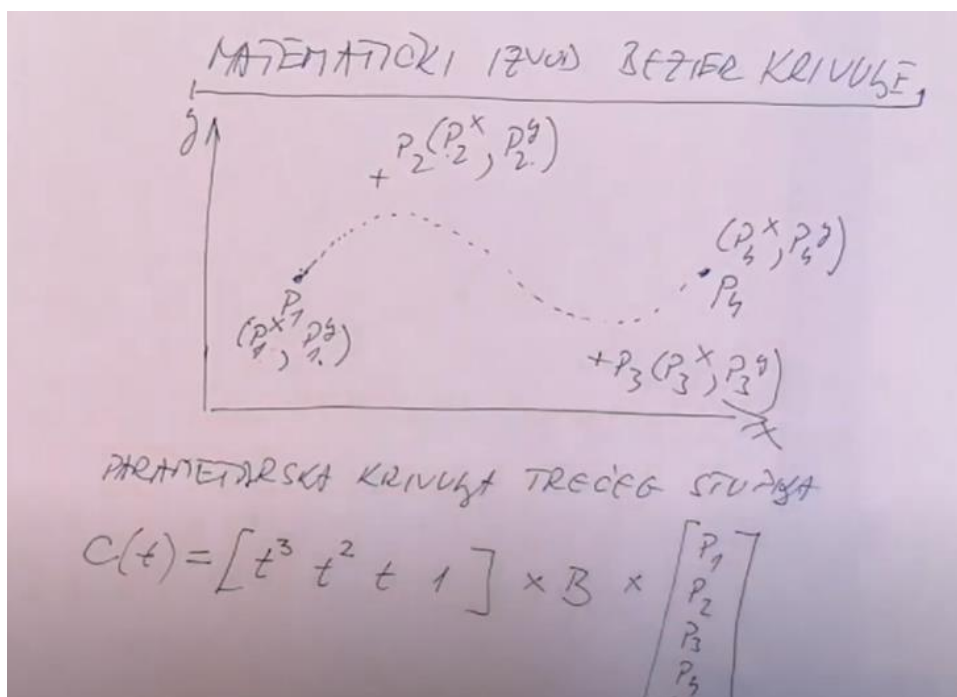 MATEMATIČKI IZVOD BEZIER KRIVULJE
y
P₂(P₂ˣ, P₂ʸ)
+
(P₄ˣ, P₄ʸ)
P₄
P₁
(P₁ˣ, P₁ʸ)
+P₃(P₃ˣ, P₃ʸ)
x
PARAMETARSKA KRIVULJA TREĆEG STUPNJA
C(t) = [t³ t² t 1] × B × [P₁
P₂
P₃
P₄